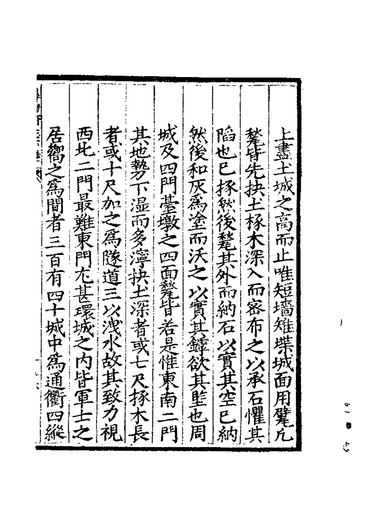 上盡土城之高而止唯短墻雉堞城面用甓凡
甃皆先抉土椓木深入而密布之以承石懼其
陷也已椓然後甃其外而納石以實其空已納
然後和灰為塗而沃之以實其鏬欲其堅也周
城及四門臺墩之四面甃皆若是惟東南二門
其地勢下濕而多濘抉土深者或七尺椓木長
者或十尺加之為隧道三以洩水故其致力視
西北二門最難東門尤甚環城之内皆軍士之
居嚮之為閒者三百有四十城中為通衢四縱